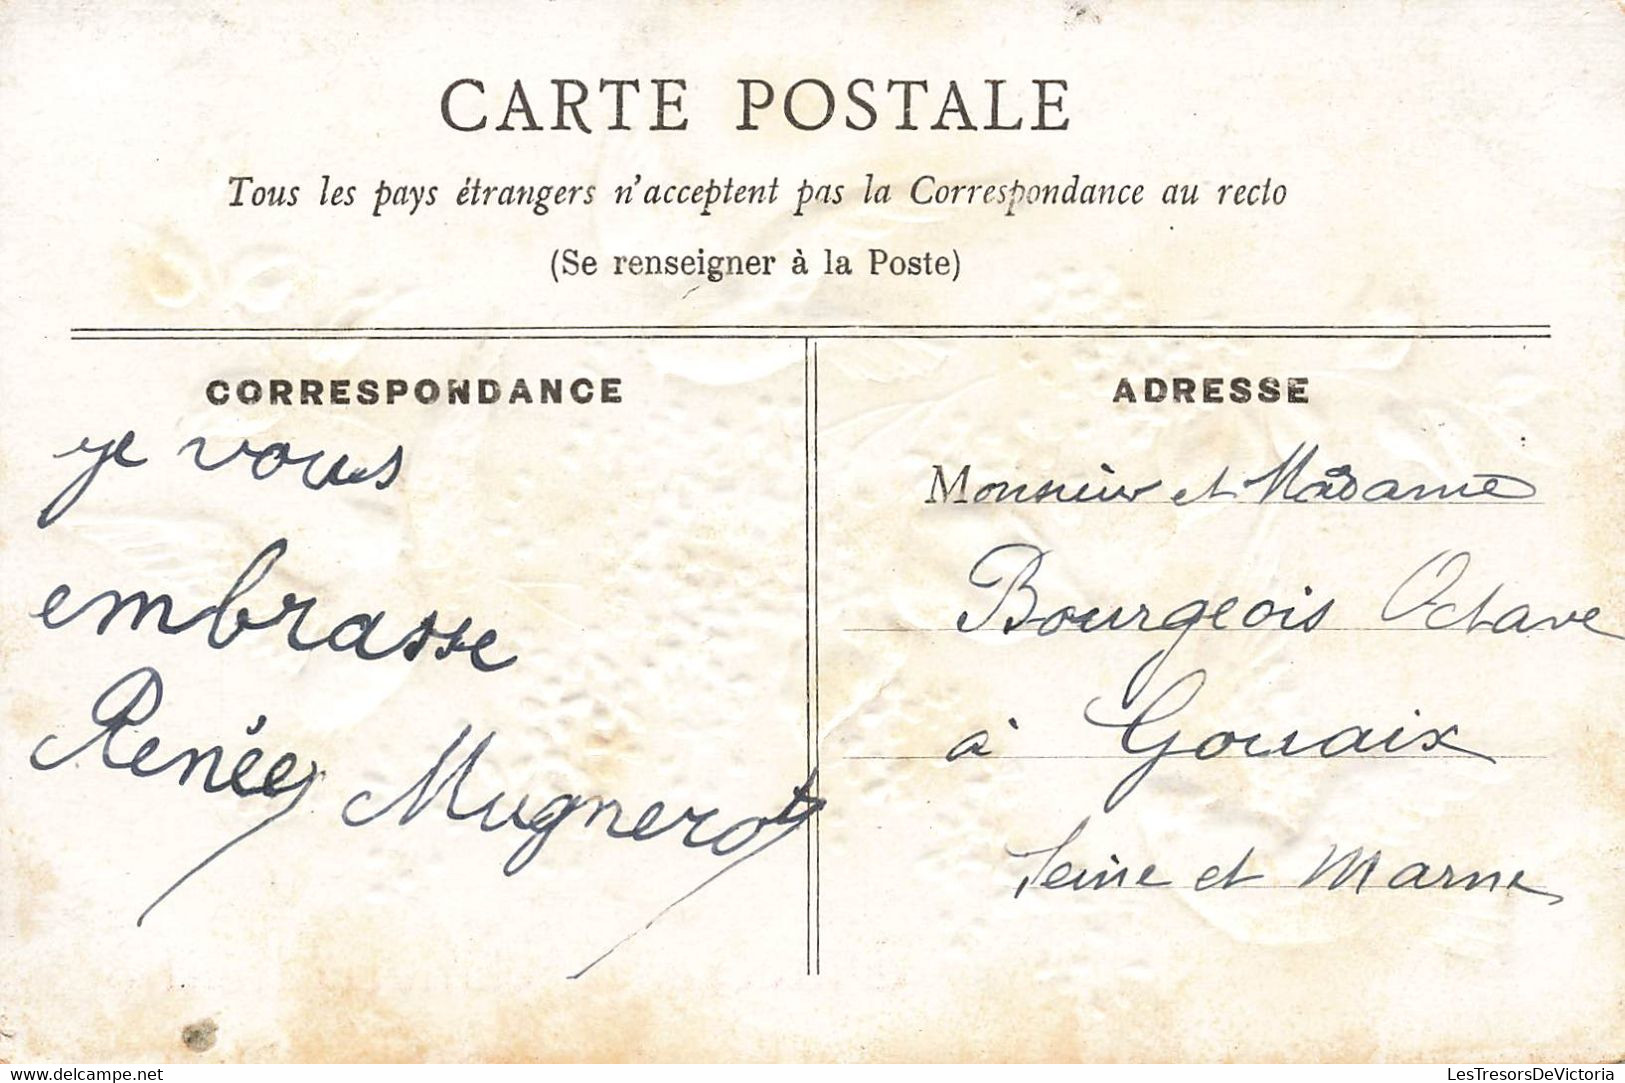 CARTE POSTALE
Tous les pays étrangers n'acceptent pas la Correspondance au recto
(Se renseigner à la Poste)
CORRESPONDANCE
je vous
embrasse
Renée Mugnerot
ADRESSE
Monsieur et Madame
Bourgeois Octave
à Gouaix
Seine et Marne
delcampe.net
LesTresorsDeVictoria